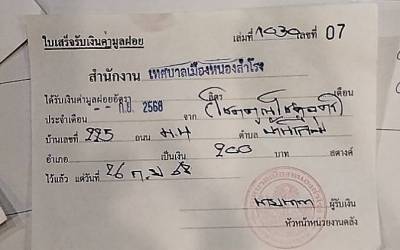 ใบเสร็จรับเงินค่ามูลฝอย เล่มที่ 1030 เลขที่ 07
สำนักงาน เทศบาลเมืองหนองสำโรง
ได้รับเงินค่ามูลฝอยอัตรา ลิตร เดือน
ประจำเดือน -- ก.ย. 2568 จาก
บ้านเลขที่ 225 ถนน ม.ห ตำบล
อำเภอ เป็นเงิน 200 บาท สตางค์
ไว้แล้ว แต่วันที่ 26 ก.ย 68
ผู้รับเงิน
หัวหน้าหน่วยงานคลัง